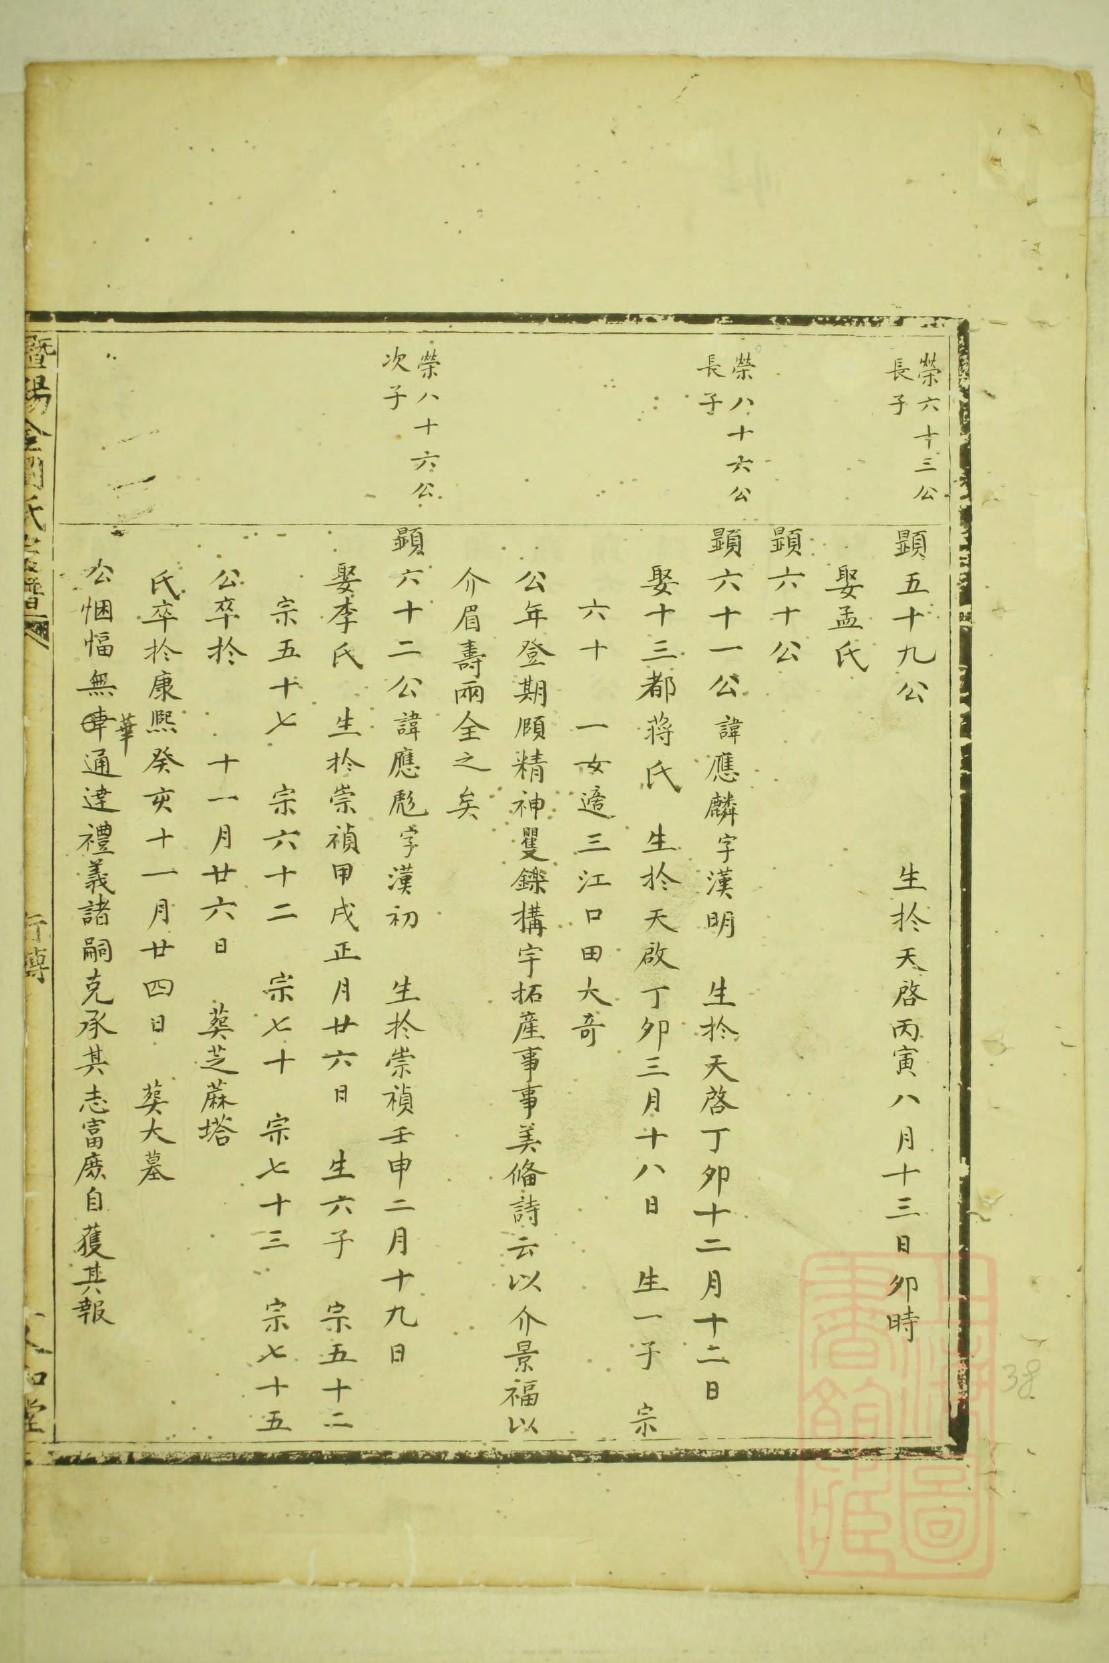 榮六十三公
長子
顯五十九公 生扵天啓丙寅八月十三日卯時
娶孟氏
顯六十公
榮八十六公
長子
顯六十一公諱應麟字漢明 生扵天啓丁卯十二月十二日
娶十三都蔣氏 生扵天啟丁卯三月十八日 生一子 宗
六十 一女適三江口田大奇
公年登期頤精神矍鑠構宇拓產事事美俻詩云以介景福以
介眉壽兩全之矣
榮八十六公
次子
顯六十二公諱應彪字漢初 生扵崇禎壬申二月十九日
娶李氏 生扵崇禎甲戌正月廿六日 生六子 宗五十二
宗五十七 宗六十二 宗七十 宗七十三 宗七十五
公卒扵 十一月廿六日 葖芝蔴塔
氏卒扵康熙癸亥十一月廿四日 葖大墓
公悃愊無華通達禮義諸嗣克承其志富庶自獲其報
暨陽全
氏宗譜
行傳
堂
38